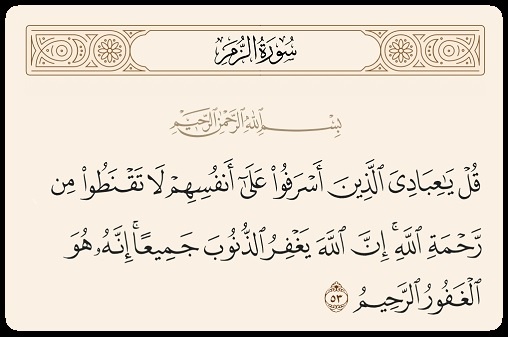 سُورَةُ الزُّمَرِ
بِسْمِ اللَّهِ الرَّحْمَٰنِ الرَّحِيمِ
قُلْ يَٰعِبَادِىَ ٱلَّذِينَ أَسْرَفُوا۟ عَلَىٰٓ أَنفُسِهِمْ لَا تَقْنَطُوا۟ مِن
رَّحْمَةِ ٱللَّهِ ۚ إِنَّ ٱللَّهَ يَغْفِرُ ٱلذُّنُوبَ جَمِيعًا ۚ إِنَّهُۥ هُوَ
ٱلْغَفُورُ ٱلرَّحِيمُ ٥٣